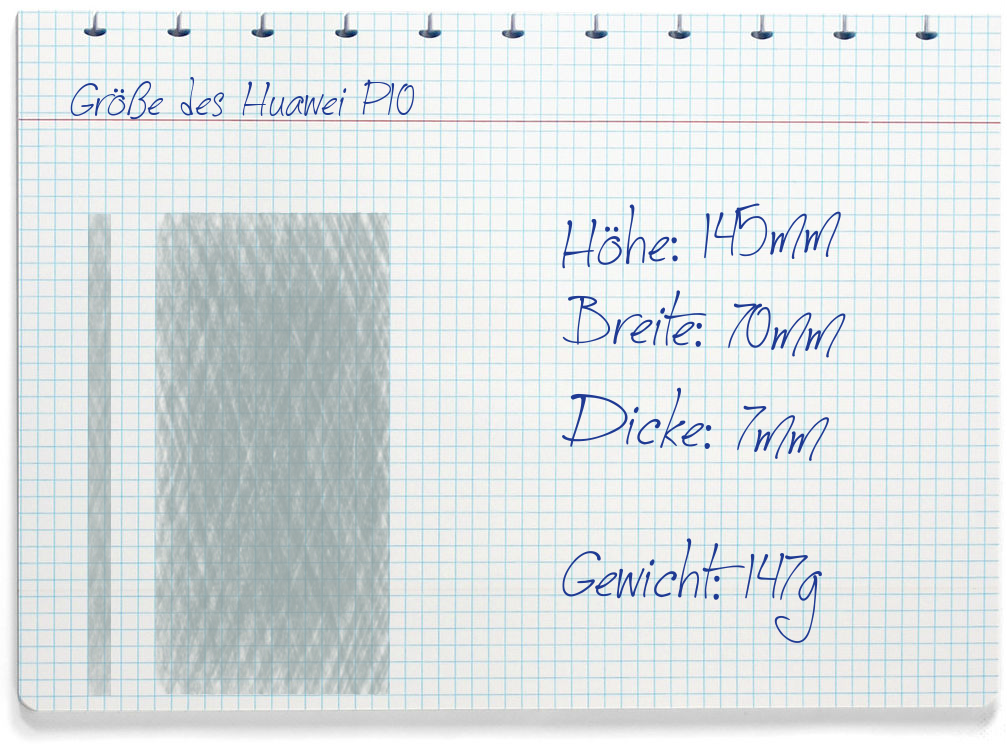 Größe des Huawei P10
Höhe: 145mm
Breite: 70mm
Dicke: 7mm
Gewicht: 147g